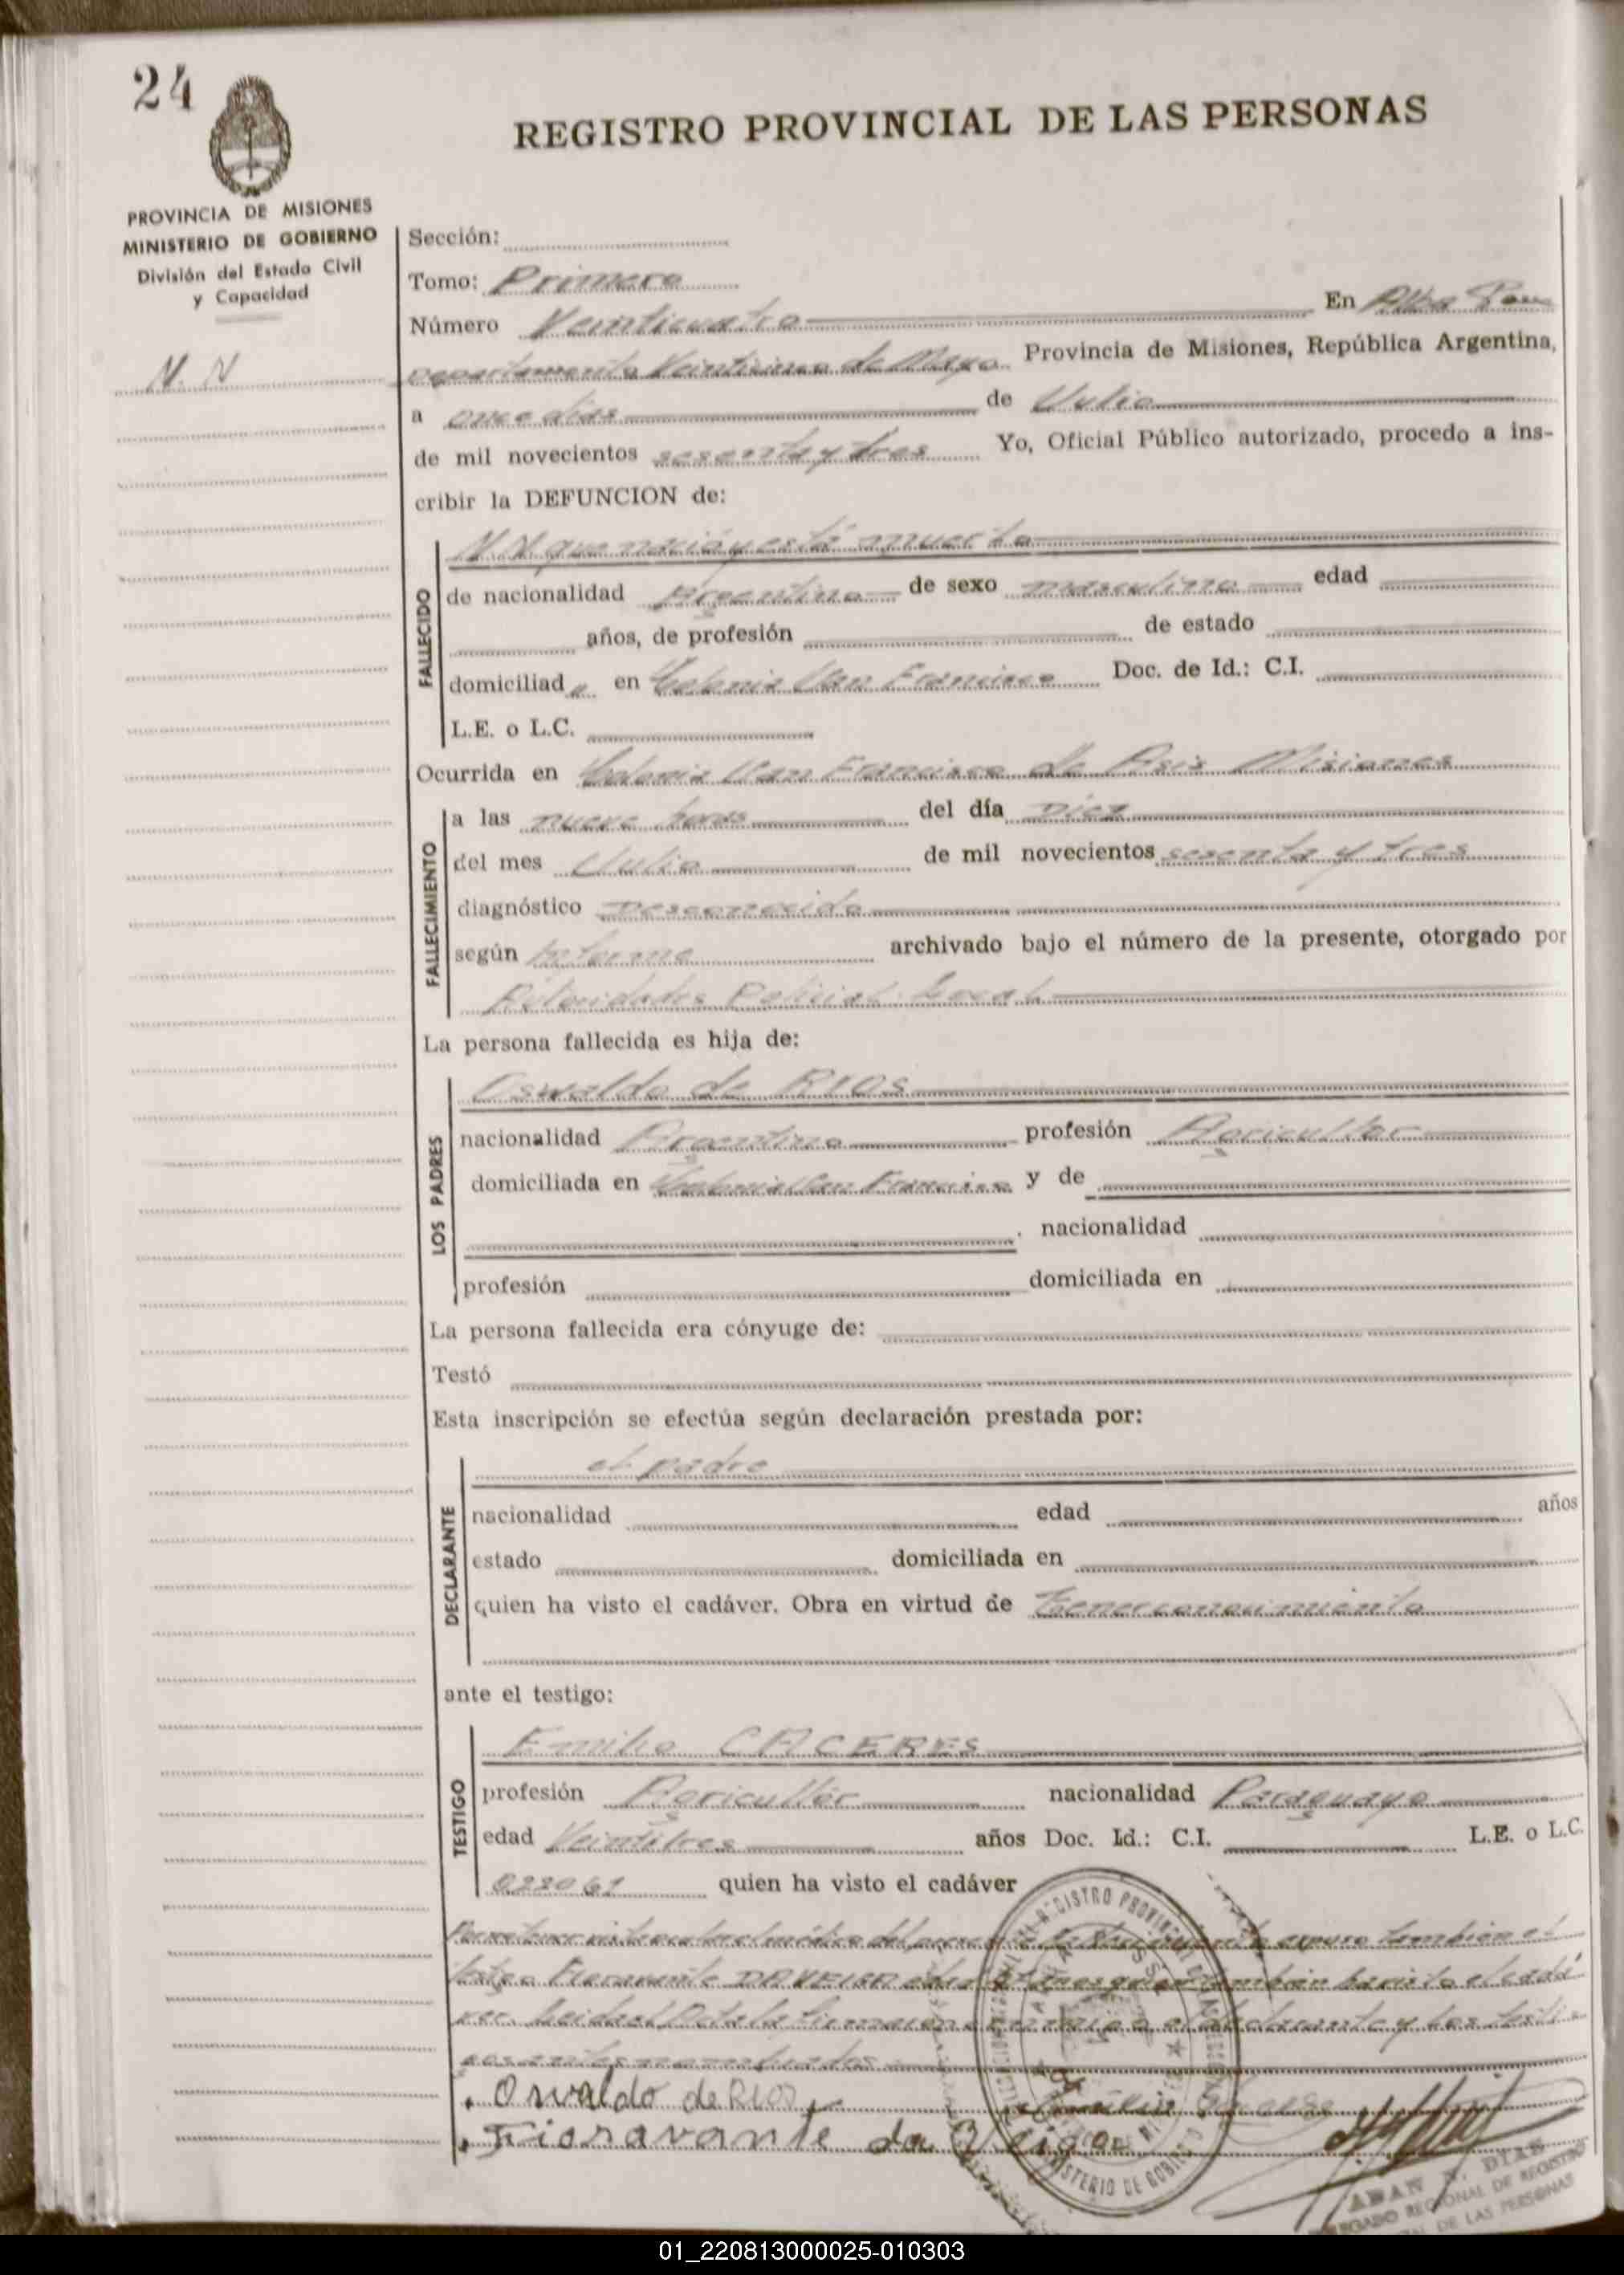 24
REGISTRO PROVINCIAL DE LAS PERSONAS
PROVINCIA DE MISIONES
MINISTERIO DE GOBIERNO
División del Estado Civil
y Capacidad
N. N
Sección:
Tomo: Primero
Número Veinticuatro En Alba Pose
departamento Veinticinco de Mayo Provincia de Misiones, República Argentina,
a once dias de Julio
de mil novecientos sesenta y tres Yo, Oficial Público autorizado, procedo a ins-
cribir la DEFUNCION de:
FALLECIDO
N. N que nació y está muerto
de nacionalidad Argentina de sexo masculino edad
años, de profesión de estado
domiciliad a en Colonia San Francisco Doc. de Id.: C.I.
L.E. o L.C.
Ocurrida en Colonia San Francisco de Asis Misiones
FALLECIMIENTO
a las nueve horas del día Diez
del mes Julio de mil novecientos sesenta y tres
diagnóstico Desconocido
según Informe archivado bajo el número de la presente, otorgado por
Autoridades Policial Local
La persona fallecida es hija de:
LOS PADRES
Oswaldo de RIOS
nacionalidad Argentina profesión Agricultor
domiciliada en Colonia San Francisco y de
. nacionalidad
profesión domiciliada en
La persona fallecida era cónyuge de:
Testó
Esta inscripción se efectúa según declaración prestada por:
DECLARANTE
el padre
nacionalidad edad años
estado domiciliada en
quien ha visto el cadáver. Obra en virtud de tener conocimiento
ante el testigo:
TESTIGO
Emilio CACERES
profesión Agricultor nacionalidad Paraguayo
edad Veintitres años Doc. Id.: C.I. L.E. o L.C.
022061 quien ha visto el cadáver
también el
testigo Fioravante DAVEIGA quien también ha visto el cadá
ver. Leida el Acta la firman conmigo el declarante y los testi
gos antes nombrados
Osvaldo de RIOS
Fioravante da Veiga
REGISTRO PROVINCIAL
MINISTERIO DE GOBIERNO
ADAN N. DIAZ
DELEGADO REGIONAL DE REGISTRO
DE LAS PERSONAS
01_220813000025-010303